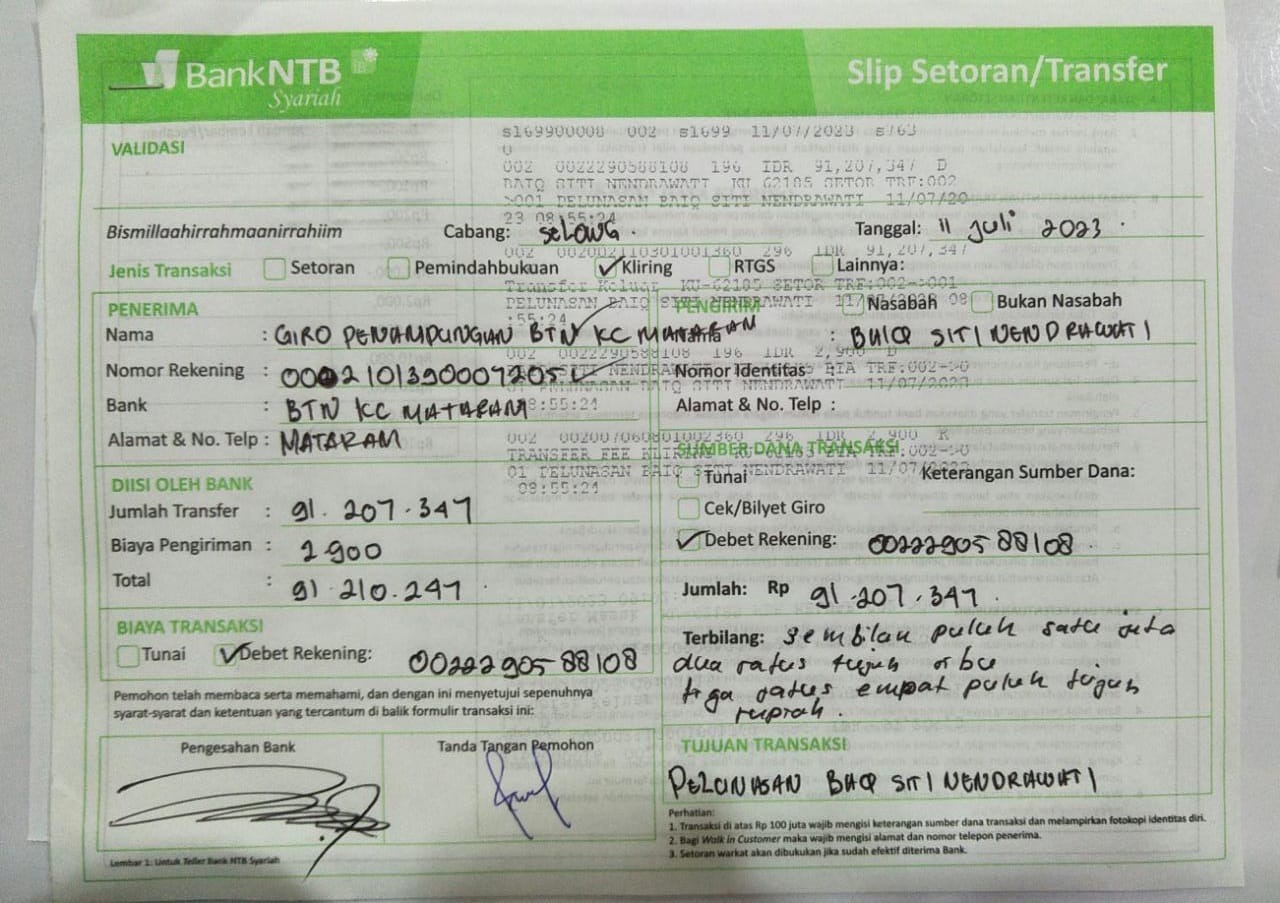 BankNTB
Syariah
Slip Setoran/Transfer
VALIDASI
s169900008 002 s1699 11/07/2023 s763
0
002 0022290588108 196 IDR 91,207,347 D
BAIQ SITI NENDRAWATI KU 62185 SETOR TRF:002
>001 PELUNASAN BAIQ SITI NENDRAWATI 11/07/20
23 08:55:24
Bismillaahirrahmaanirrahiim
Cabang: SELONG.
Tanggal: 11 Juli 2023.
002 002002110301001360 296 IDR 91,207,347
Jenis Transaksi Setoran Pemindahbukuan Kliring RTGS Lainnya:
Transfer Keluar KU-62185 SETOR TRF:002->001
PELUNASAN BAIQ SITI NENDRAWATI 11/07/2023 08
:55:24
PENERIMA
Nama : GIRO PENAMPUNGAN BTN KC MATARAM
Nomor Rekening :
Bank : BTN KC MATARAM
Alamat & No. Telp : MATARAM
PENGIRIM Nasabah Bukan Nasabah
Nama : BAIQ SITI NENDRAWATI
002 0022290588108 196 IDR 2,900 D
Nomor Identitas :
01 PELUNASAN BAIQ SITI NENDRAWATI 11/07/2023
08:55:24
Alamat & No. Telp :
002 002007060801002360 296 IDR 2,900 K
TRANSFER FEE KLIRING KU 62185 BIA TRF:002->0
01 PELUNASAN BAIQ SITI NENDRAWATI 11/07/2023
08:55:24
DIISI OLEH BANK
Jumlah Transfer : 91.207.347
Biaya Pengiriman : 2900
Total : 91.210.247.
BIAYA TRANSAKSI
Tunai Debet Rekening: 0022290588108
SUMBER DANA TRANSAKSI
Tunai Keterangan Sumber Dana:
Cek/Bilyet Giro
Debet Rekening: 0022290588108.
Jumlah: Rp 91.207.347.
Terbilang: Sembilan puluh satu juta
dua ratus tujuh ribu
tiga ratus empat puluh tujuh
rupiah.
Pemohon telah membaca serta memahami, dan dengan ini menyetujui sepenuhnya
syarat-syarat dan ketentuan yang tercantum di balik formulir transaksi ini:
Pengesahan Bank
Tanda Tangan Pemohon
TUJUAN TRANSAKSI
PELUNASAN BAIQ SITI NENDRAWATI
Perhatian:
1. Transaksi di atas Rp 100 juta wajib mengisi keterangan sumber dana transaksi dan melampirkan fotokopi identitas diri.
2. Bagi Walk in Customer maka wajib mengisi alamat dan nomor telepon penerima.
3. Setoran warkat akan dibukukan jika sudah efektif diterima Bank.
Lembar 1: Untuk Teller Bank NTB Syariah